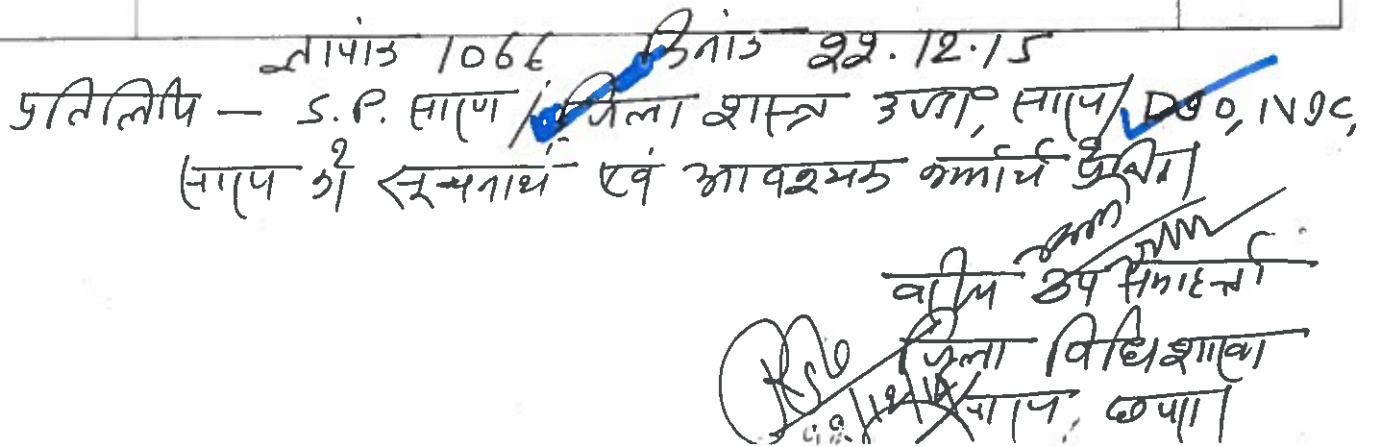 ज्ञापांक 1066 दिनांक 22.12.15
प्रतिलिपि — S.P. सारण / जिला शस्त्र दण्डा०, सारण / DIO, NIC,
सारण को सूचनार्थ एवं आवश्यक कार्यार्थ प्रेषित।
वरीय उप समाहर्ता
जिला विधि शाखा
सारण, छपरा।